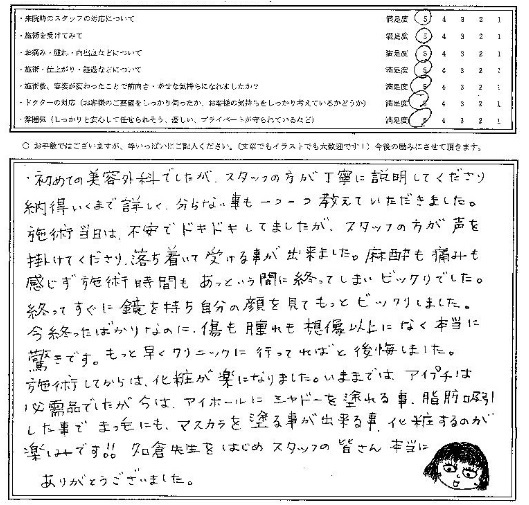 ・来院時のスタッフの対応について 満足度 5 4 3 2 1
・施術を受けてみて 満足度 5 4 3 2 1
・お痛み・腫れ・内出血などについて 満足度 5 4 3 2 1
・施術・仕上がり・経過などについて 満足度 5 4 3 2 1
・施術後、容姿が変わったことで前向き・幸せな気持ちになれましたか? 満足度 5 4 3 2 1
・ドクターの対応(お客様のご要望をしっかり伺ったか、お客様の気持ちをしっかり考えているかどうか) 満足度 5 4 3 2 1
・雰囲気(しっかりと安心して任せられそう、優しい、プライベートが守られているなど) 満足度 5 4 3 2 1
○ お手数ではございますが、枠いっぱいにご記入ください。(文章でもイラストでも大歓迎です!)今後の励みにさせて頂きます。
・初めての美容外科でしたが、スタッフの方が丁寧に説明してくださり
納得いくまで詳しく、分らない事も一つ一つ教えていただきました。
施術当日は、不安でドキドキしてましたが、スタッフの方が声を
掛けてくださり、落ち着いて受ける事が出来ました。麻酔も痛みも
感じず施術時間もあっという間に終ってしまいビックリでした。
終ってすぐに鏡を持ち自分の顔を見てもっとビックリしました。
今終ったばかりなのに、傷も腫れも想像以上になく本当に
驚きです。もっと早くクリニックに行ってればと後悔しました。
施術してからは、化粧が楽になりました。いままでは、アイプチは
必需品でしたが今は、アイホールにシャドーを塗れる事、脂肪吸引
した事でまつ毛にも、マスカラを塗る事が出来る事、化粧するのが
楽しみです!! 先生をはじめスタッフの皆さん本当に
ありがとうございました。